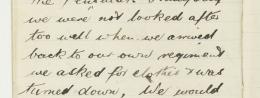 the
we were not looked after
too well when we arrived
back to our own regiment
we asked for clothes & was
turned down, We would